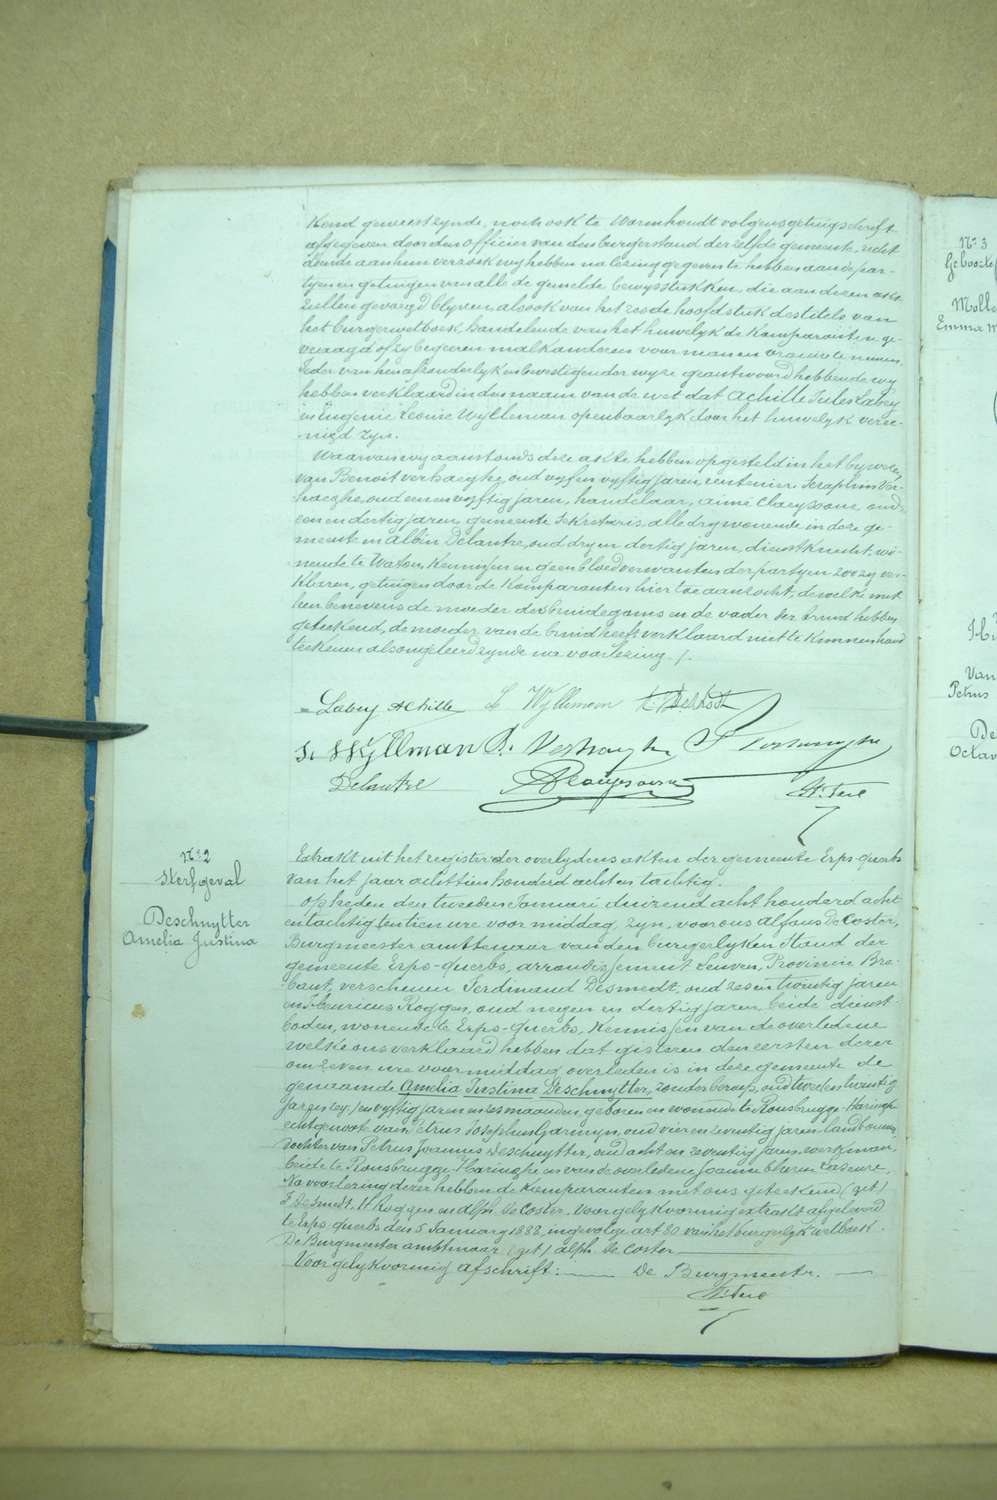 kend geweest zynde, noch ook te Wormhoudt volgens getuigschrift
afgegeven door den officier van den burgerstand derzelfde gemeente, recht
doende aan hun verzoek wy hebben na lezing gegeven te hebben aan de par-
tyen en getuigen van alle de gemelde bewysstukken, die aan dezen akt
zullen gevoegd blyven, alsook van het zesde hoofdstuk des titels van
het burgerwetboek handelende van het huwelyk de komparanten ge-
vraagd of zy begeeren malkanderen voor man en vrouw te nemen.
Ieder van hen afzonderlyk en bevestigender wyze geantwoord hebbende wy
hebben verklaard in den naam van de wet dat Achille Jules Labey
en Eugenie Leonie Wylleman openbaarlyk door het huwelyk veree-
nigd zyn.
Waarvan wy aanstonds deze akte hebben opgesteld in het bywezen
van Benoit Verhaeghe, oud vyf en vyftig jaren, rentenier, Seraphin Ver-
haeghe, oud een en vyftig jaren, handelaar, Aimé Claeysoone oud
een en dertig jaren, gemeente Sekretaris, alle dry wonende in deze ge-
meente en Albin Delautre, oud dry en dertig jaren, dienstknecht, wo-
nende te Watou, kennissen en geen bloedverwanten der partyen zoo zy ver-
klaren, getuigen door de komparanten hier toe aanzocht, dewelke met
hen benevens de moeder des bruidegoms en de vader der bruid hebben
geteekend, de moeder van de bruid heeft verklaard niet te kunnen hand-
teekenen als ongeleerd zynde na voorlezing ./.
Labey Achille L Wylleman
S. Wylleman B. Verhaeghe S Verhaeghe
Delautre AClaeysoone
N° 2
Sterfgeval
Deschuytter
Amelia Justina
Extrakt uit het register der overlydens akten der gemeente Erps-Querbs
van het jaar achttien honderd acht en tachtig.
Op heden den tweeden Januari duizend acht honderd acht
en tachtig ten tien ure voor middag, zyn, voor ons Alfons De Coster,
Burgmeester ambtenaar van den burgerlyken Stand der
gemeente Erps-Querbs, arrondissement Leuven, Provincie Bra-
bant, verschenen Ferdinand Desmedt, oud zes en twintig jaren
en Henricus Roggen, oud negen en dertig jaren, beide dienst-
boden, wonende te Erps-Querbs, kennissen van de overledene
welke ons verklaard hebben dat gisteren den eersten dezer
om zeven ure voormiddag overleden is in deze gemeente de
genaamde Amelia Justina Deschuytter, zonder beroep, oud twee en twintig
jaren zeg: zes vyftig jaren en zes maanden, geboren en wonende te Rousbrugge-Haringhe
echtgenoot van Petrus Josephus Garmyn, oud vier en zeventig jaren landbouwer,
dochter van Petrus Joannes Deschuytter, oud acht en zeventig jaren, werkman,
beide te Rousbrugge-Haringhe en van de overledene Joanna Theresia
Na voorlezing dezer hebben de komparanten met ons geteekend (get)
F Desmedt. H Roggen en Alph. De Coster. Voor gelykvormig extrakt afgeleverd
te Erps-Querbs den 5 January 1888, ingevolge art 80 van het burgerlyk wetboek.
De Burgmeester ambtenaar (get) Alph. De Coster
Voor gelykvormig afschrift: De Burgmeester.
N° 3
Petrus